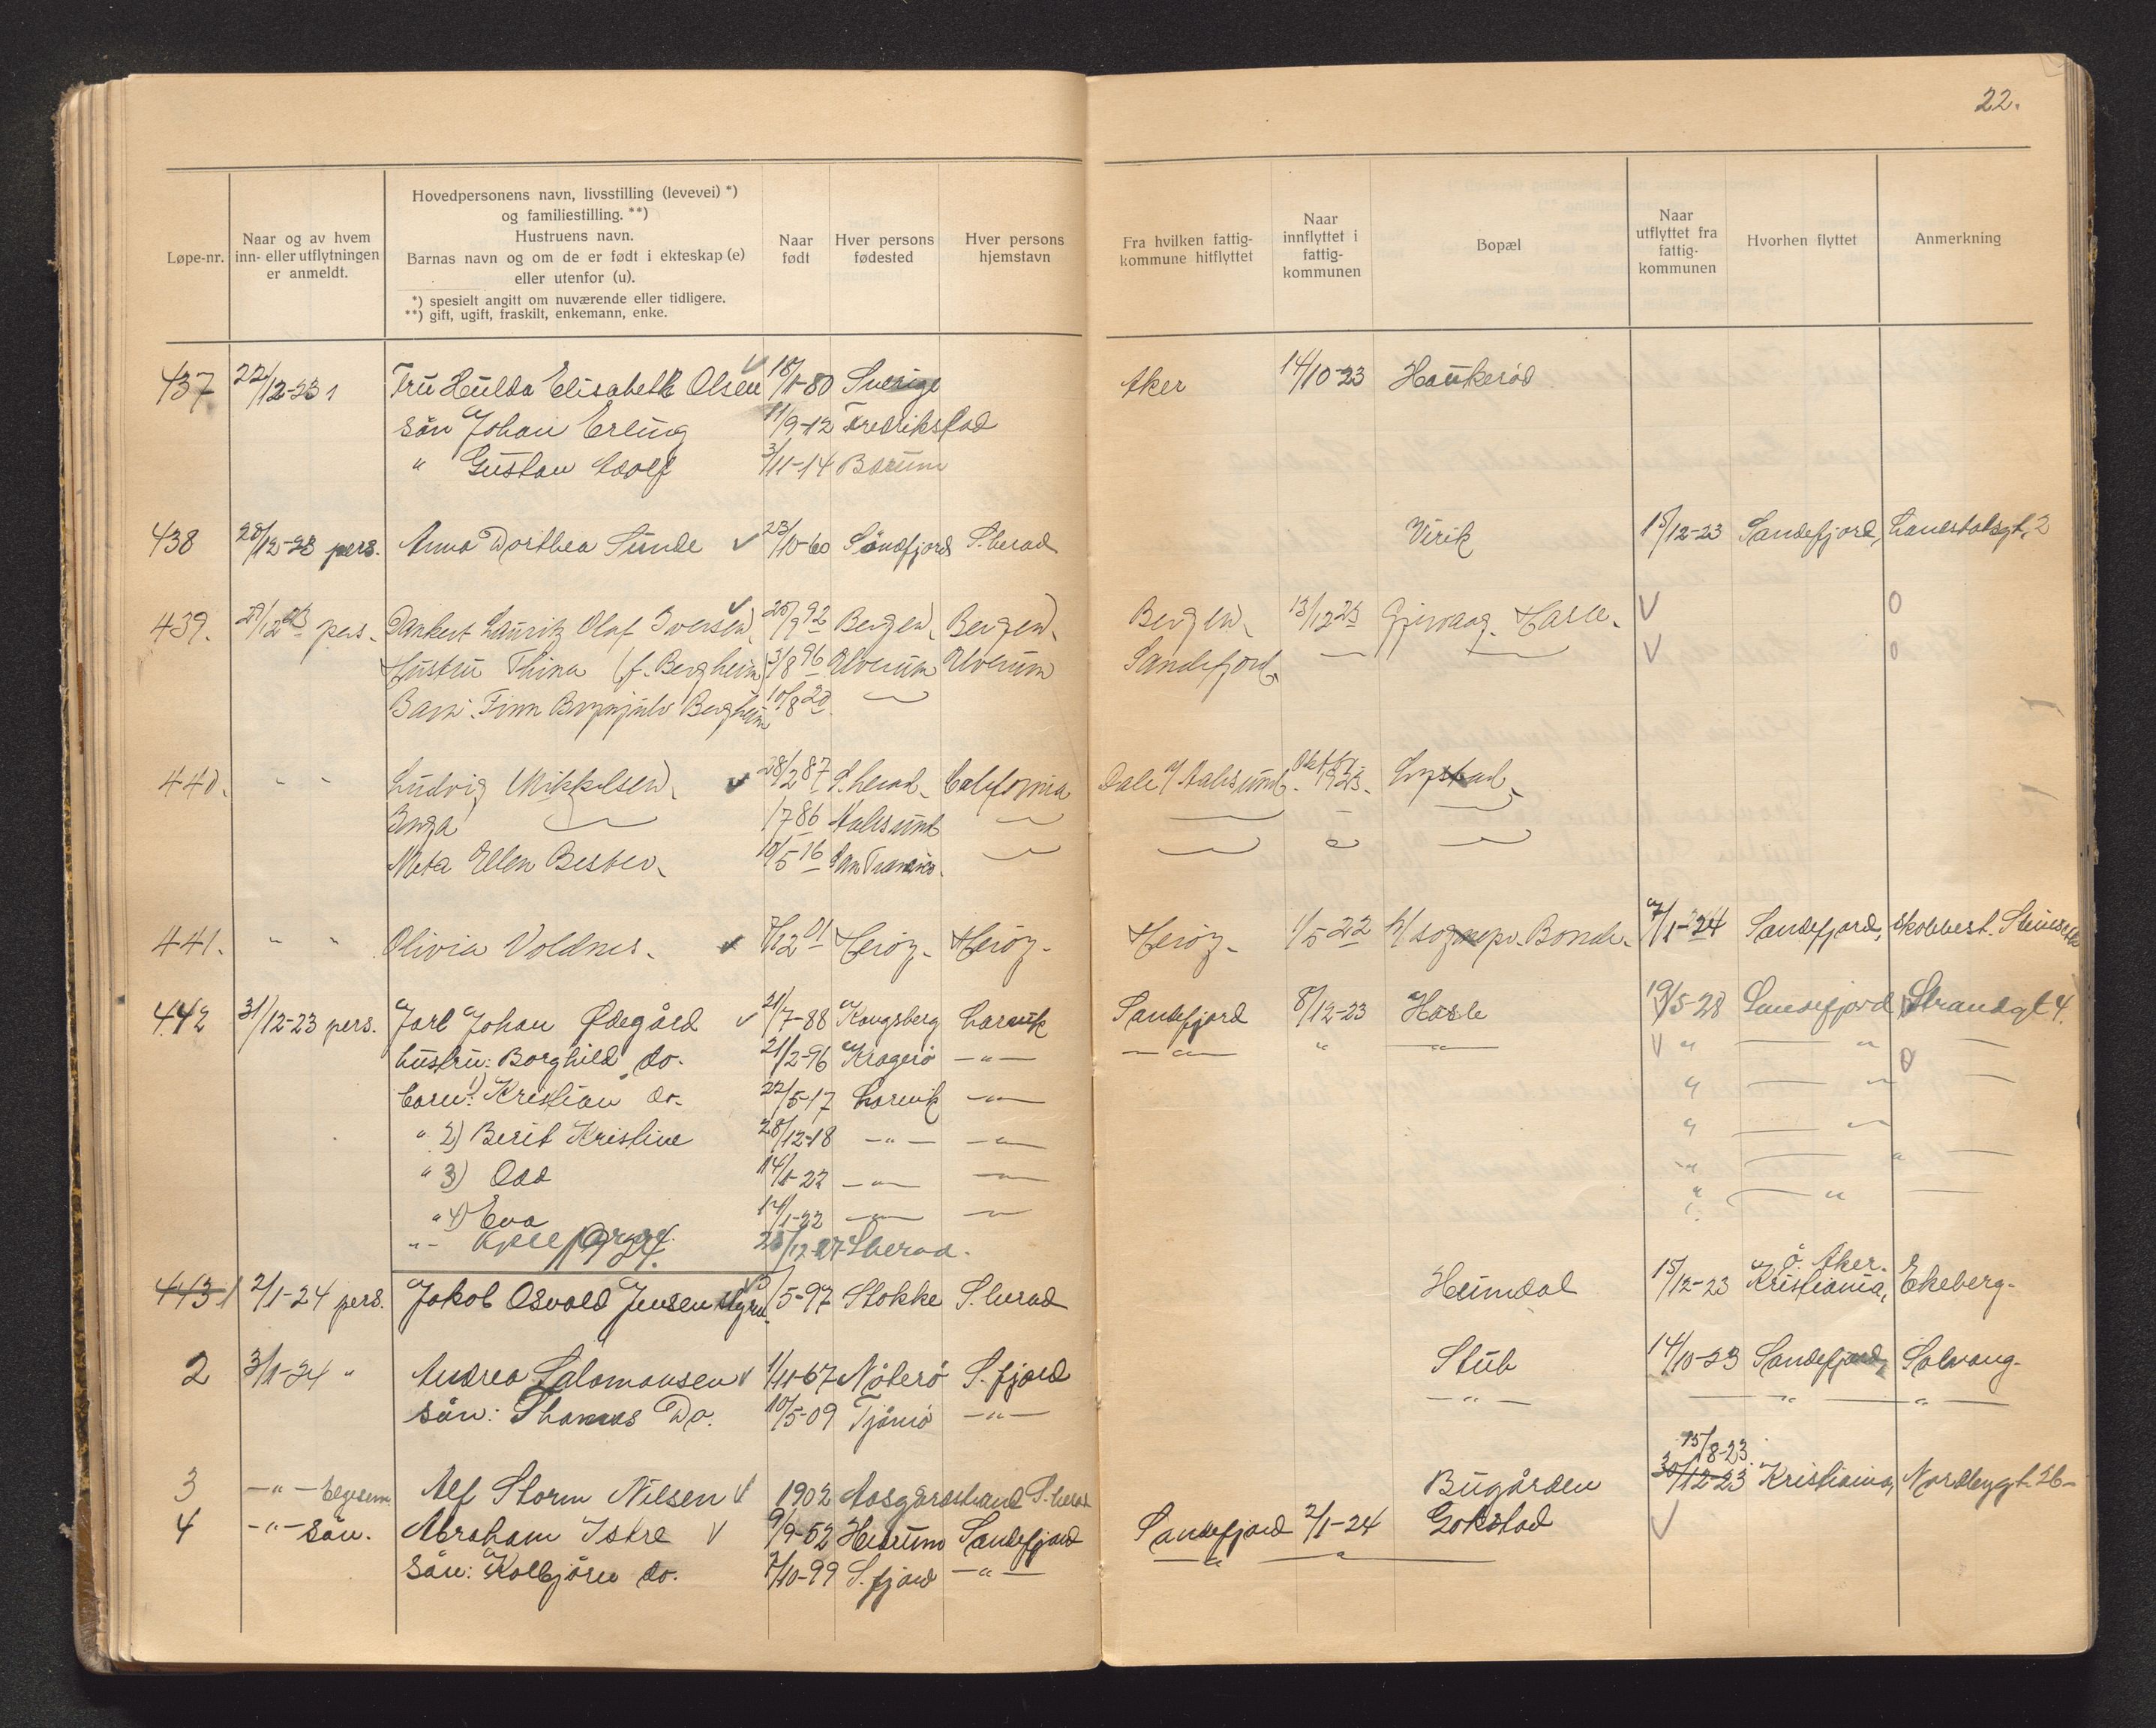 22.
Løpe-nr. Naar og av hvem inn- eller utflytningen er anmeldt. Hovedpersonens navn, livsstilling (levevei) *) og familiestilling. **) Hustruens navn. Barnas navn og om de er født i ekteskap (e) eller utenfor (u). *) spesielt angitt om nuværende eller tidligere. **) gift, ugift, fraskilt, enkemann, enke. Naar født Hver persons fødested Hver persons hjemstavn Fra hvilken fattig-kommune hitflyttet Naar innflyttet i fattig-kommunen Bopæl Naar utflyttet fra fattig-kommunen Hvorhen flyttet Anmerkning
437 22/12-23 Fru Hulda Elisabeth Olsen 18/1-80 Sverige Aker 14/10-23 Haukerød
Sön Johan Erling 11/9-12 Fredrikstad
" Gustav Adolf 3/11-14 Bærum
438 28/12-23 pers. Anna Dorthea Sunde 23/10-60 Söndfjord S.herad Virik 15/12-23 Sandefjord,
439. 29/12 23 pers. Dankert Lauritz Olaf Iversen 20/9 92 Bergen Bergen Bergen 13/12 23 Hasle. V 0
Hustru Thina (f. Bergheim) 3/8 96 Elverum Elverum Sandefjord V 0
Barn. Finn Bergheim 10/8 20
440. " " Ludvig Mikkelsen 28/2 87 S.herad California Dale / Aalesund 1923. Lystad
Inga /7 86 Aalesund
Meta Ellen Bester 10/5 16 San Francisco.
441. " " Olivia Voldnes. 7/12 01 Herøy Herøy Herøy 1/5 22 h/ sognepr. Bonde 7/1-24 Sandefjord,
442 31/12-23 pers. Jarl Johan Ødegård 21/7-88 Kongsberg Larvik Sandefjord 8/12-23 Hasle 19/5-28 Sandefjord Strandgt 4.
hustru: Borghild do. 21/2-96 Kragerö —"— —"— " —"— V " — " —
barn: 1) Kristian do. 22/5-17 Larvik —"— " — " —
" 2) Berit Kristine 28/12-18 —"— —"— " — "
" 3) Odd 14/1-22 —"— —"— " — " —
" 4) Eva 14/1-22 —"— —"— " — " —
"- Kjell 23/12-27 S.herad.
1924.
443 1 2/1-24 pers. Jakob Osvald Jensen /5-97 Stokke S.herad Heimdal 15/12-23 Kristiania, Ö. Aker. Ekeberg-
2 3/1-24 " Andrea Salomonsen V 1/11-67 Nöterö S.fjord Stub 14/10-23 Sandefjord, Solvang-
sön: Thomas Do. 10/5-09 Tjömö —"— —"— — " — " —
3 —"— Alf Storm Nilsen V 1902 Aasgårdstrand S.herad Bugården 30/12-23 15/8-23. Kristiania,
4 —"— sön. Abraham Istre V 9/9-52 Hedrum Sandefjord Sandefjord 2/1-24 Gokstad V
Sön: Kolbjörn do. 7/10-99 S.fjord —"— — " — " —